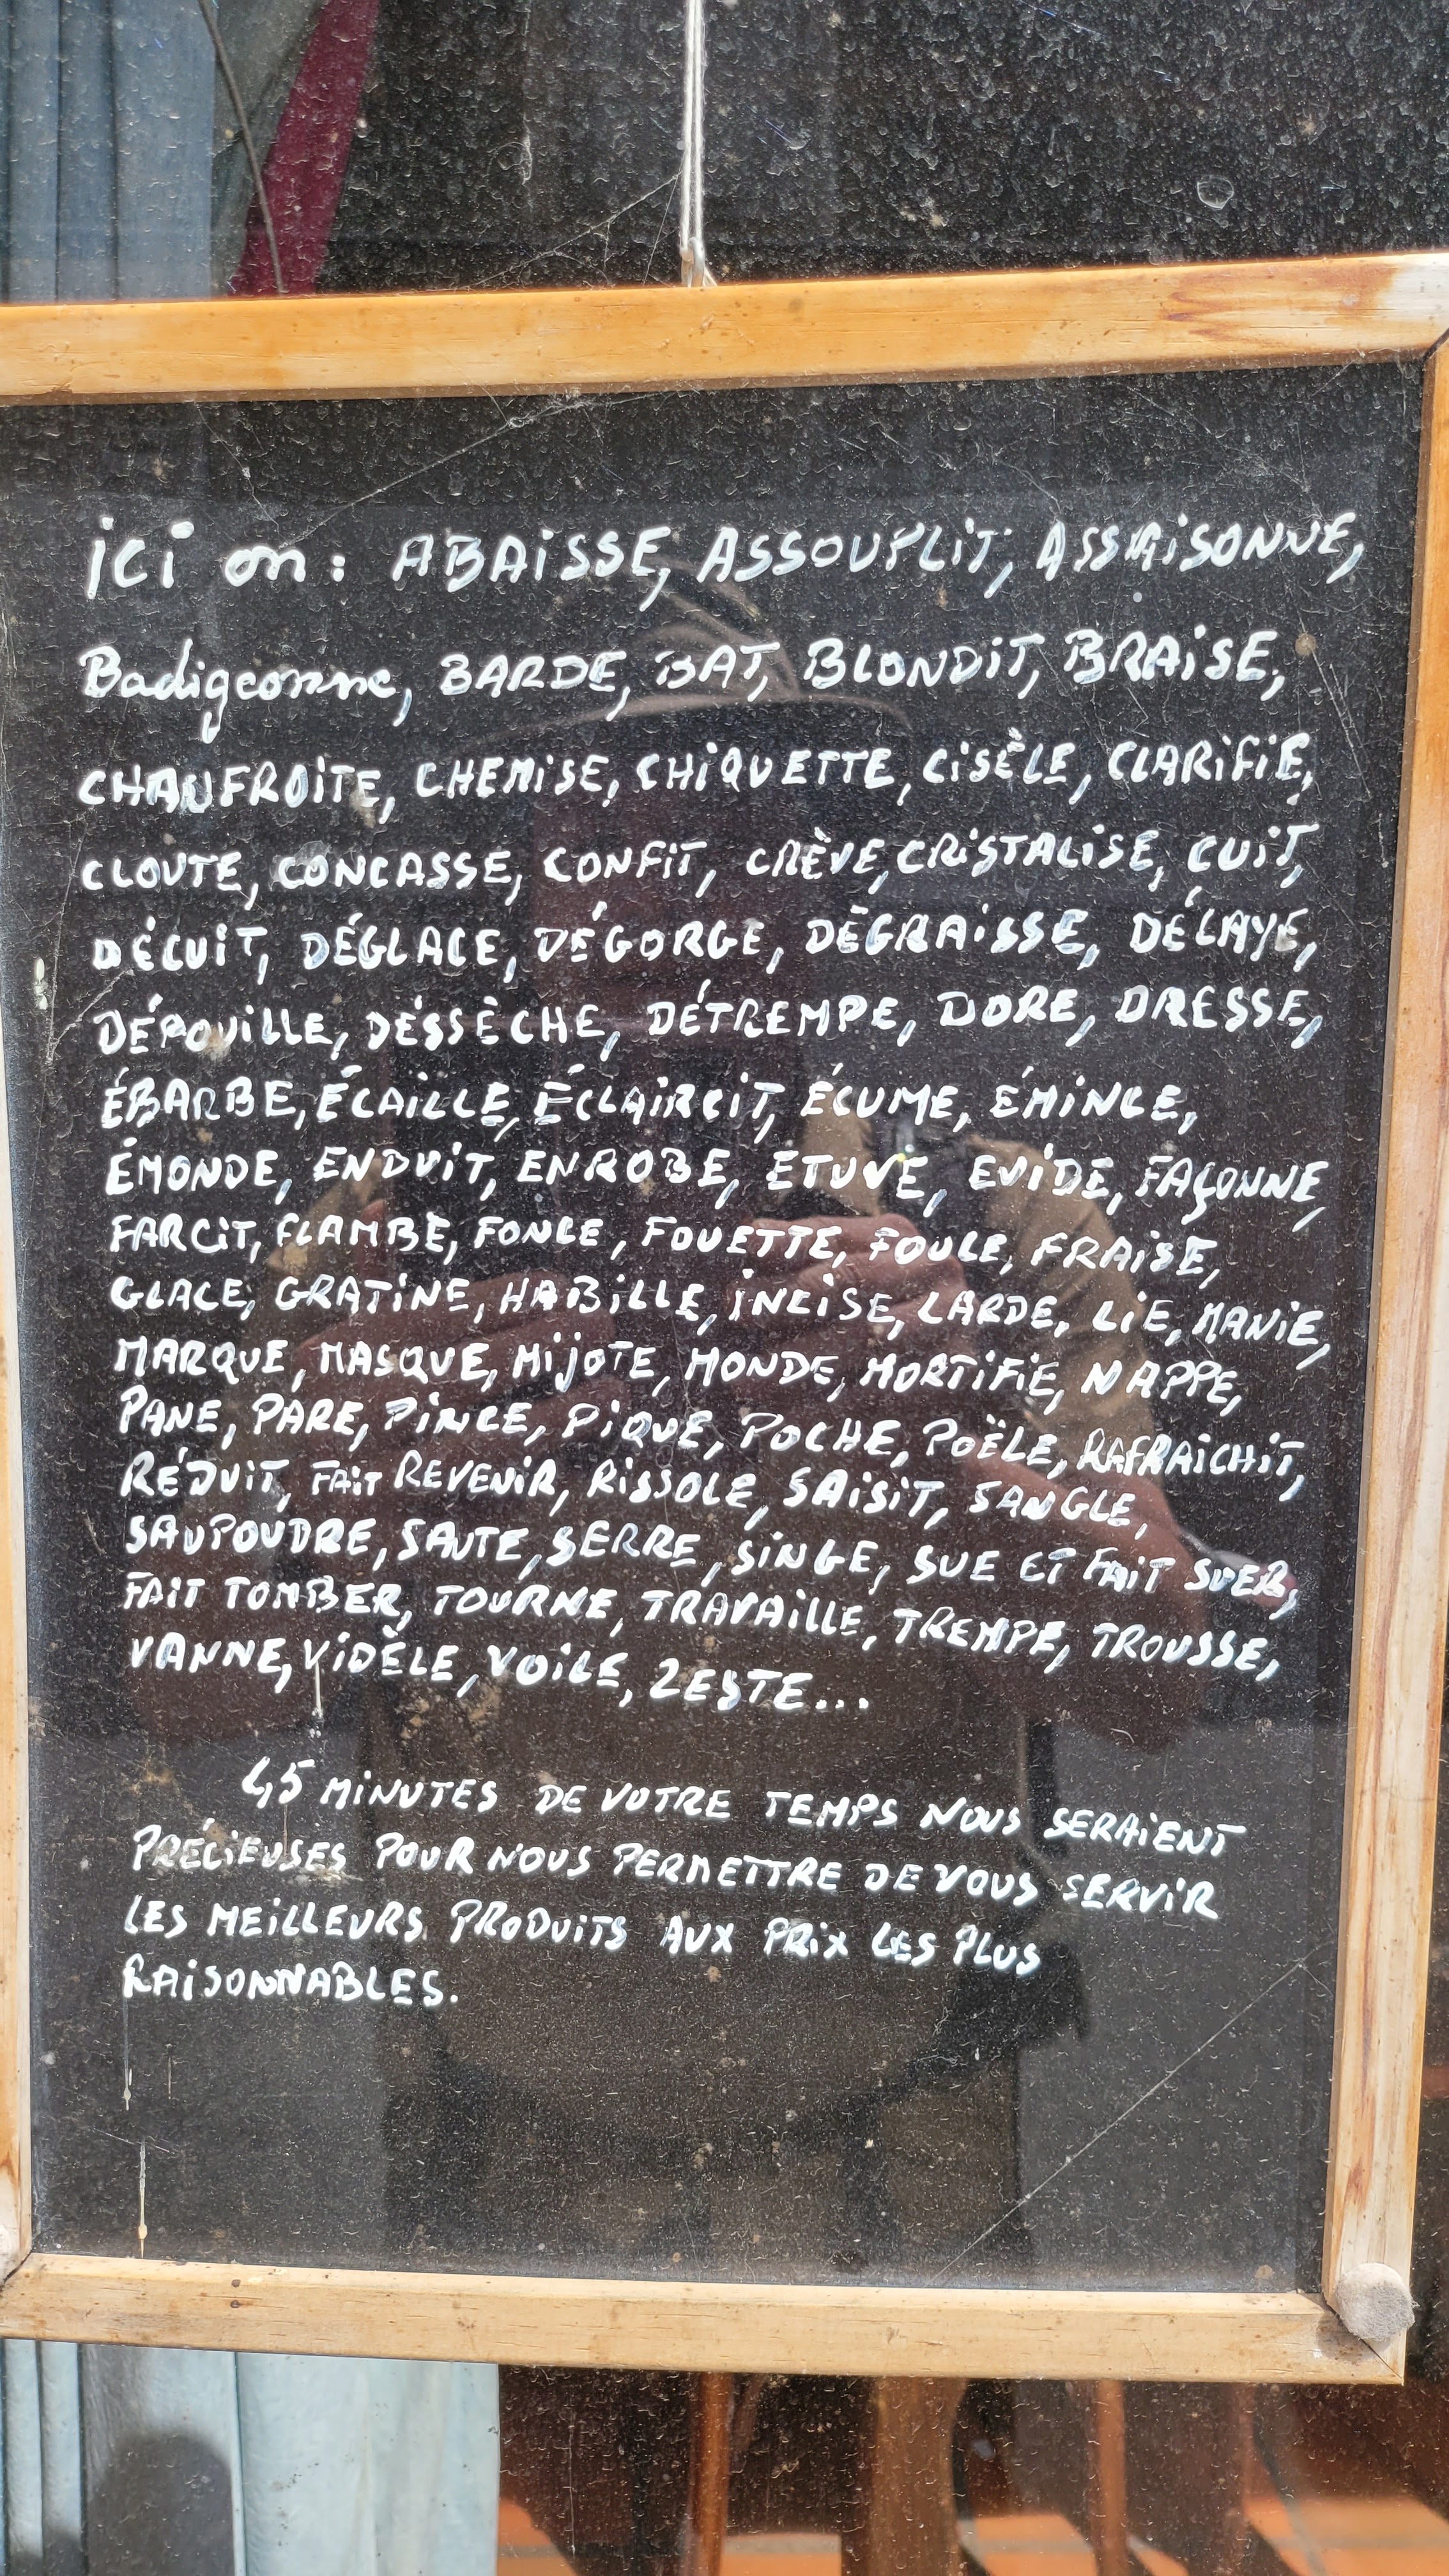 ici on: ABAISSE, ASSOUPLIT, ASSAISONNE,
Badigeonne, BARDE, BAT, BLONDIT, BRAISE,
CHANFROITE, CHEMISE, CHIQUETTE, CISÈLE, CLARIFIE,
CLOUTE, CONCASSE, CONFIT, CRÈVE, CRISTALISE, CUIT,
DÉCUIT, DÉGLACE, DÉGORGE, DÉGRAISSE, DÉLAYE,
DÉPOUILLE, DÉSSÈCHE, DÉTREMPE, DORE, DRESSE,
ÉBARBE, ÉCAILLE, ÉCLAIRCIT, ÉCUME, ÉMINCE,
ÉMONDE, ENDUIT, ENROBE, ETUVE, EVIDE, FAÇONNE,
FARCIT, FLAMBE, FONCE, FOUETTE, FOULE, FRAISE,
GLACE, GRATINE, HABILLE, INCISE, LARDE, LIE, MANIE,
MARQUE, MASQUE, MIJOTE, MONDE, MORTIFIE, NAPPE,
PANE, PARE, PINCE, PIQUE, POCHE, POËLE, RAFRAICHIT,
RÉDUIT, FAIT REVENIR, RISSOLE, SAISIT, SANGLE,
SAUPOUDRE, SAUTE, SERRE, SINGE, SUE ET FAIT SUER,
FAIT TOMBER, TOURNE, TRAVAILLE, TREMPE, TROUSSE,
VANNE, VIDÈLE, VOILE, ZESTE...
45 MINUTES DE VOTRE TEMPS NOUS SERAIENT
PRÉCIEUSES POUR NOUS PERMETTRE DE VOUS SERVIR
LES MEILLEURS PRODUITS AUX PRIX LES PLUS
RAISONNABLES.